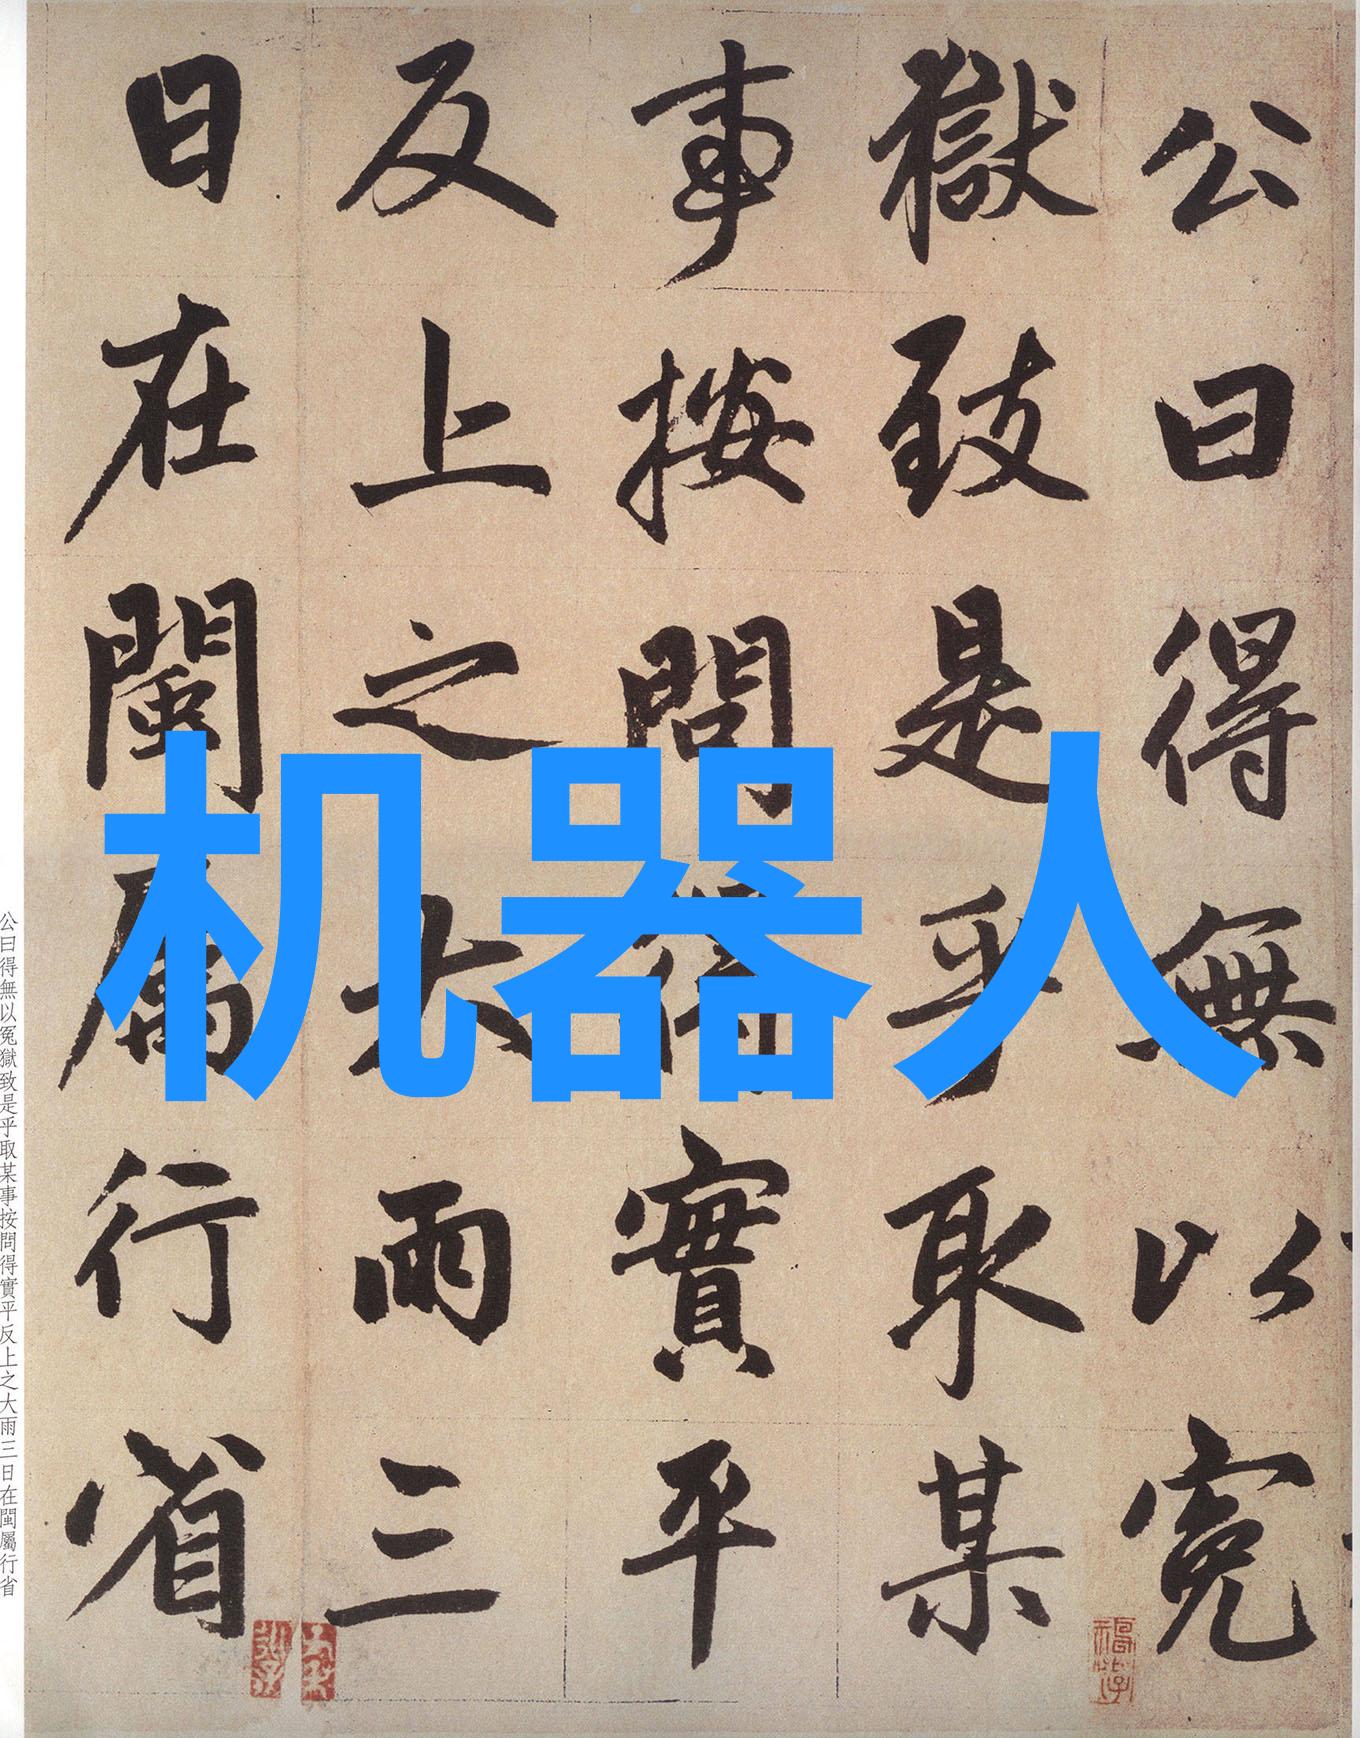 公曰得無以冤
獄致是乎取某
事按問得實平
反上之大雨三
日在閩属行省
机器人
公曰得無以冤獄致是乎取某事按問得實平反上之大雨三日在閩屬行省